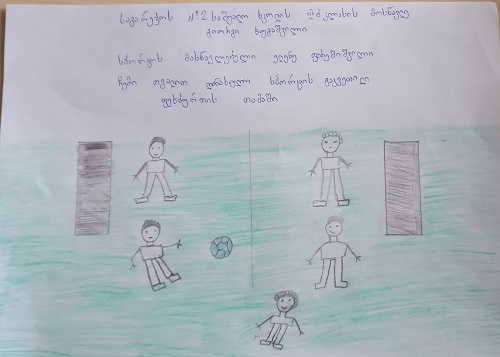 საგარეჯოს №2 საჯარო სკოლის III კლასის მოსწავლე
გიორგი ხუმაშვილი
სპორტის მასწავლებელი ელენე
ჩემი თვალით დანახული სპორტის გაკვეთილი
ფეხბურთის თამაში